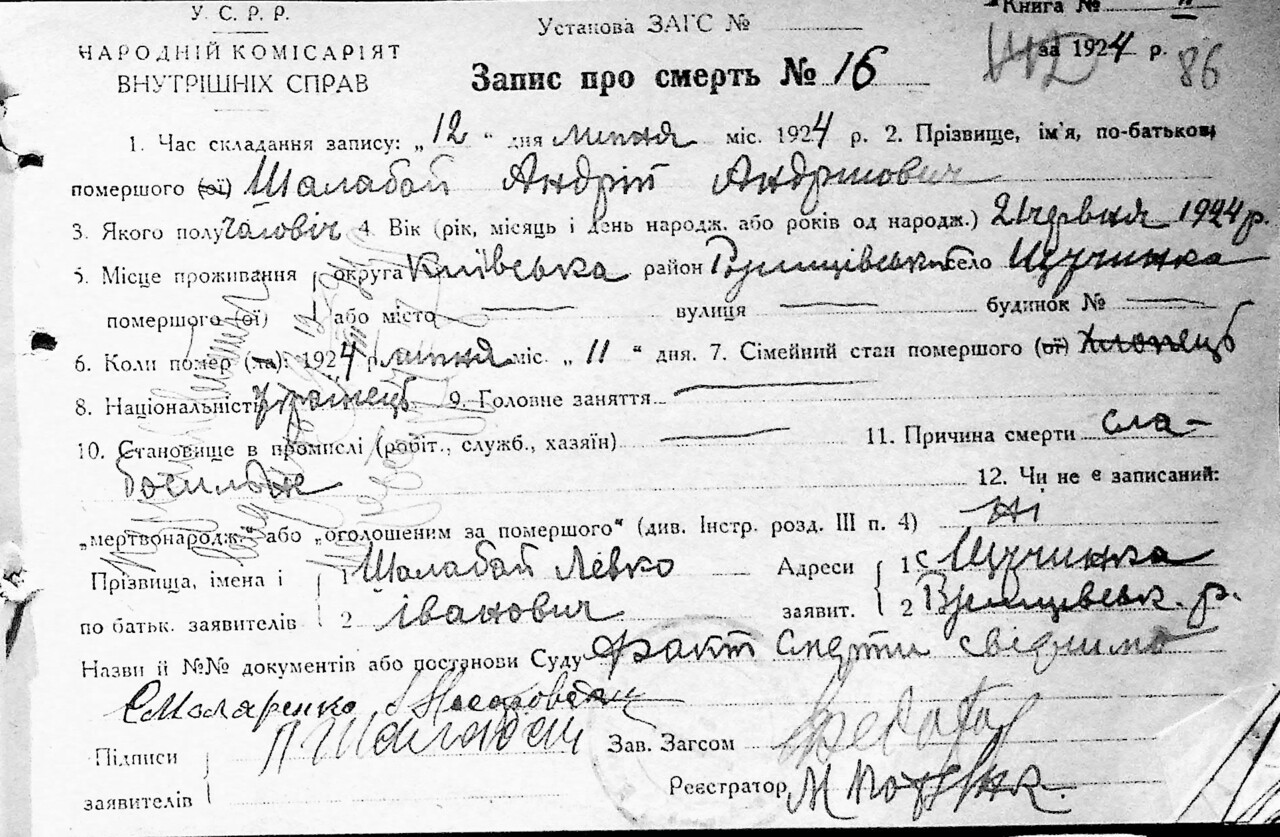 У. С. Р. Р.
НАРОДНІЙ КОМІСАРІЯТ
ВНУТРІШНІХ СПРАВ
Установа ЗАГС №
Книга № II
за 1924 р. 86
Запис про смерть № 16
1. Час складання запису: „12“ дня липня міс. 1924 р. 2. Прізвище, ім'я, по-батькові
помершого (ої) Шалабай Андрій Андріиович
3. Якого полу Чоловіч 4. Вік (рік, місяць і день народж. або років од народж.) 21 червня 1924 р.
5. Місце проживання округа Київська район Ржищівськ село Щучинка
помершого (ої) або місто вулиця будинок №
6. Коли помер (ла): 1924 р. липня міс. „11“ дня. 7. Сімейний стан помершого (ої) хлопець
8. Національність Украінець 9. Головне заняття
10. Становище в промислі (робіт., служб., хазяїн) 11. Причина смерти сла-
босильня 12. Чи не є записаний:
„мертвонародж.“ або „оголошеним за помершого“ (див. Інстр. розд. III п. 4) Ні
Прізвища, імена і 1 Шалабай Левко Адреси 1 с Щучинка
по батьк. заявителів 2 Іванович заявит. 2 Ржищевськ. р.
Назви й №№ документів або постанови Суду Факт смерти свідчимо
Підписи П Шалабай Зав. Загсом
заявителів Реєстратор М